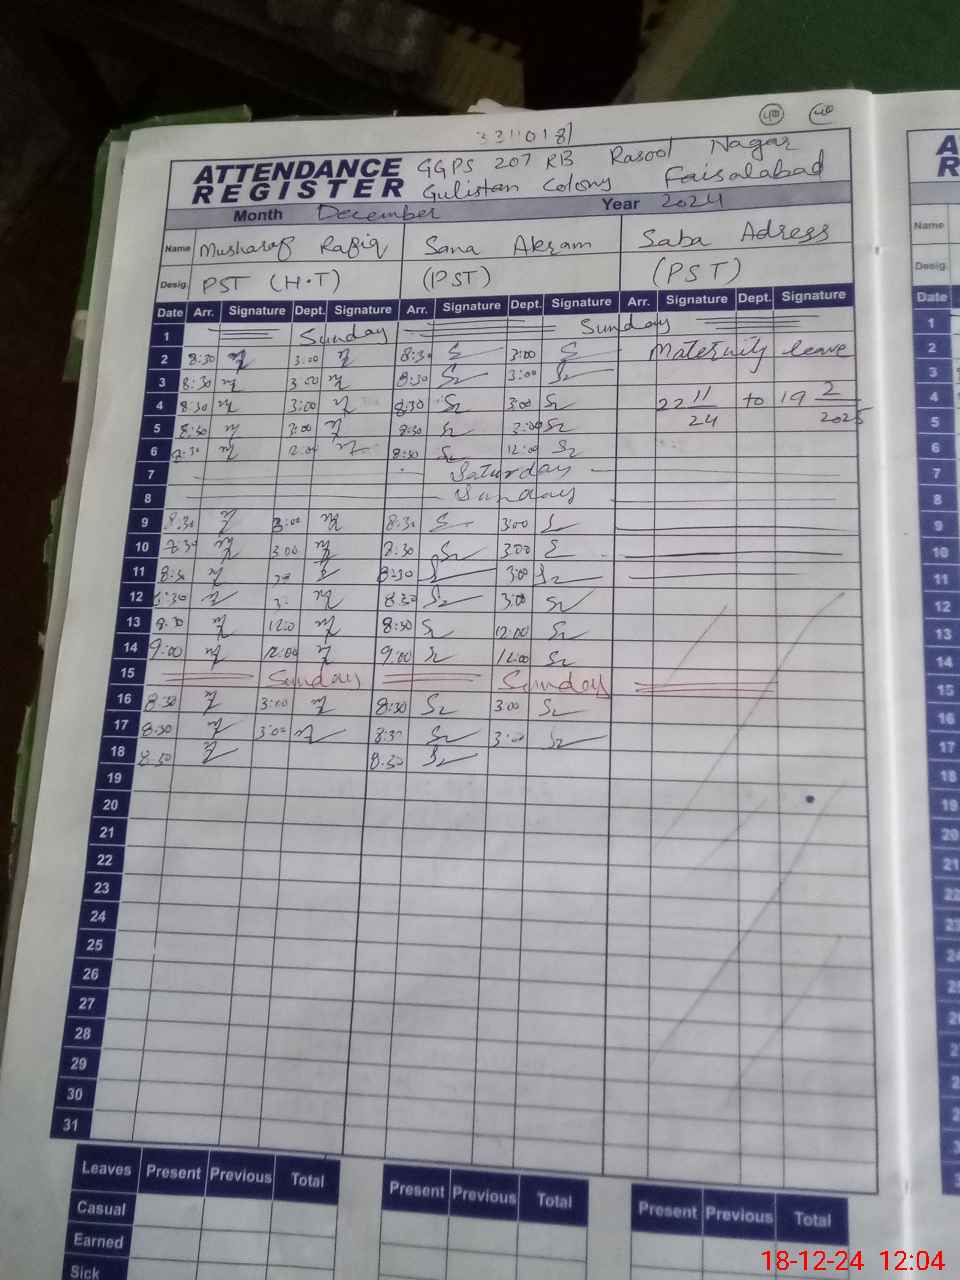 40 40
ATTENDANCE REGISTER GGPS 207 RB Rasool Nagar
Gulistan Colony Faisalabad
Month December Year 2024
Name Musharaf Rafiq Sana Akram Saba Adress
Desig. PST (H.T) (PST) (PST)
Date Arr. Signature Dept. Signature Arr. Signature Dept. Signature Arr. Signature Dept. Signature
1 Sunday Sunday
2 8:30 3:00 8:30 3:00 Maternity leave
3 8:30 3:00 8:30 3:00
4 8:30 3:00 8:30 3:00 22 11/24 to 19 2/2025
5 8:30 3:00 8:30 3:00
6 12:00 8:30 12:00
7 Saturday
8 Sunday
9 8:30 3:00 8:30 3:00
10 3:00 8:30 3:00
11 8:30 8:30 3:00
12 8:30 3:00
13 8:30 8:30 12:00
14 9:00 12:00 9:00 12:00
15 Sunday Sunday
16 8:30 3:00 8:30 3:00
17 8:30 3:00 8:30 3:00
18 8:30 8:30
19
20
21
22
23
24
25
26
27
28
29
30
31
Leaves Present Previous Total Present Previous Total Present Previous Total
Casual
Earned
Sick
18-12-24 12:04